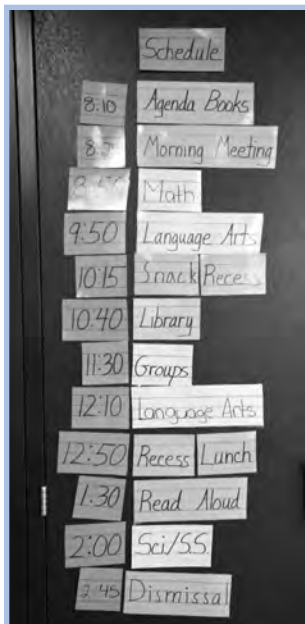 Schedule
8:10 Agenda Books
Morning Meeting
Math
9:50 Language Arts
10:15 Snack Recess
10:40 Library
11:30 Groups
12:10 Language Arts
12:50 Recess Lunch
1:30 Read Aloud
2:00 Sci/S.S.
2:45 Dismissal